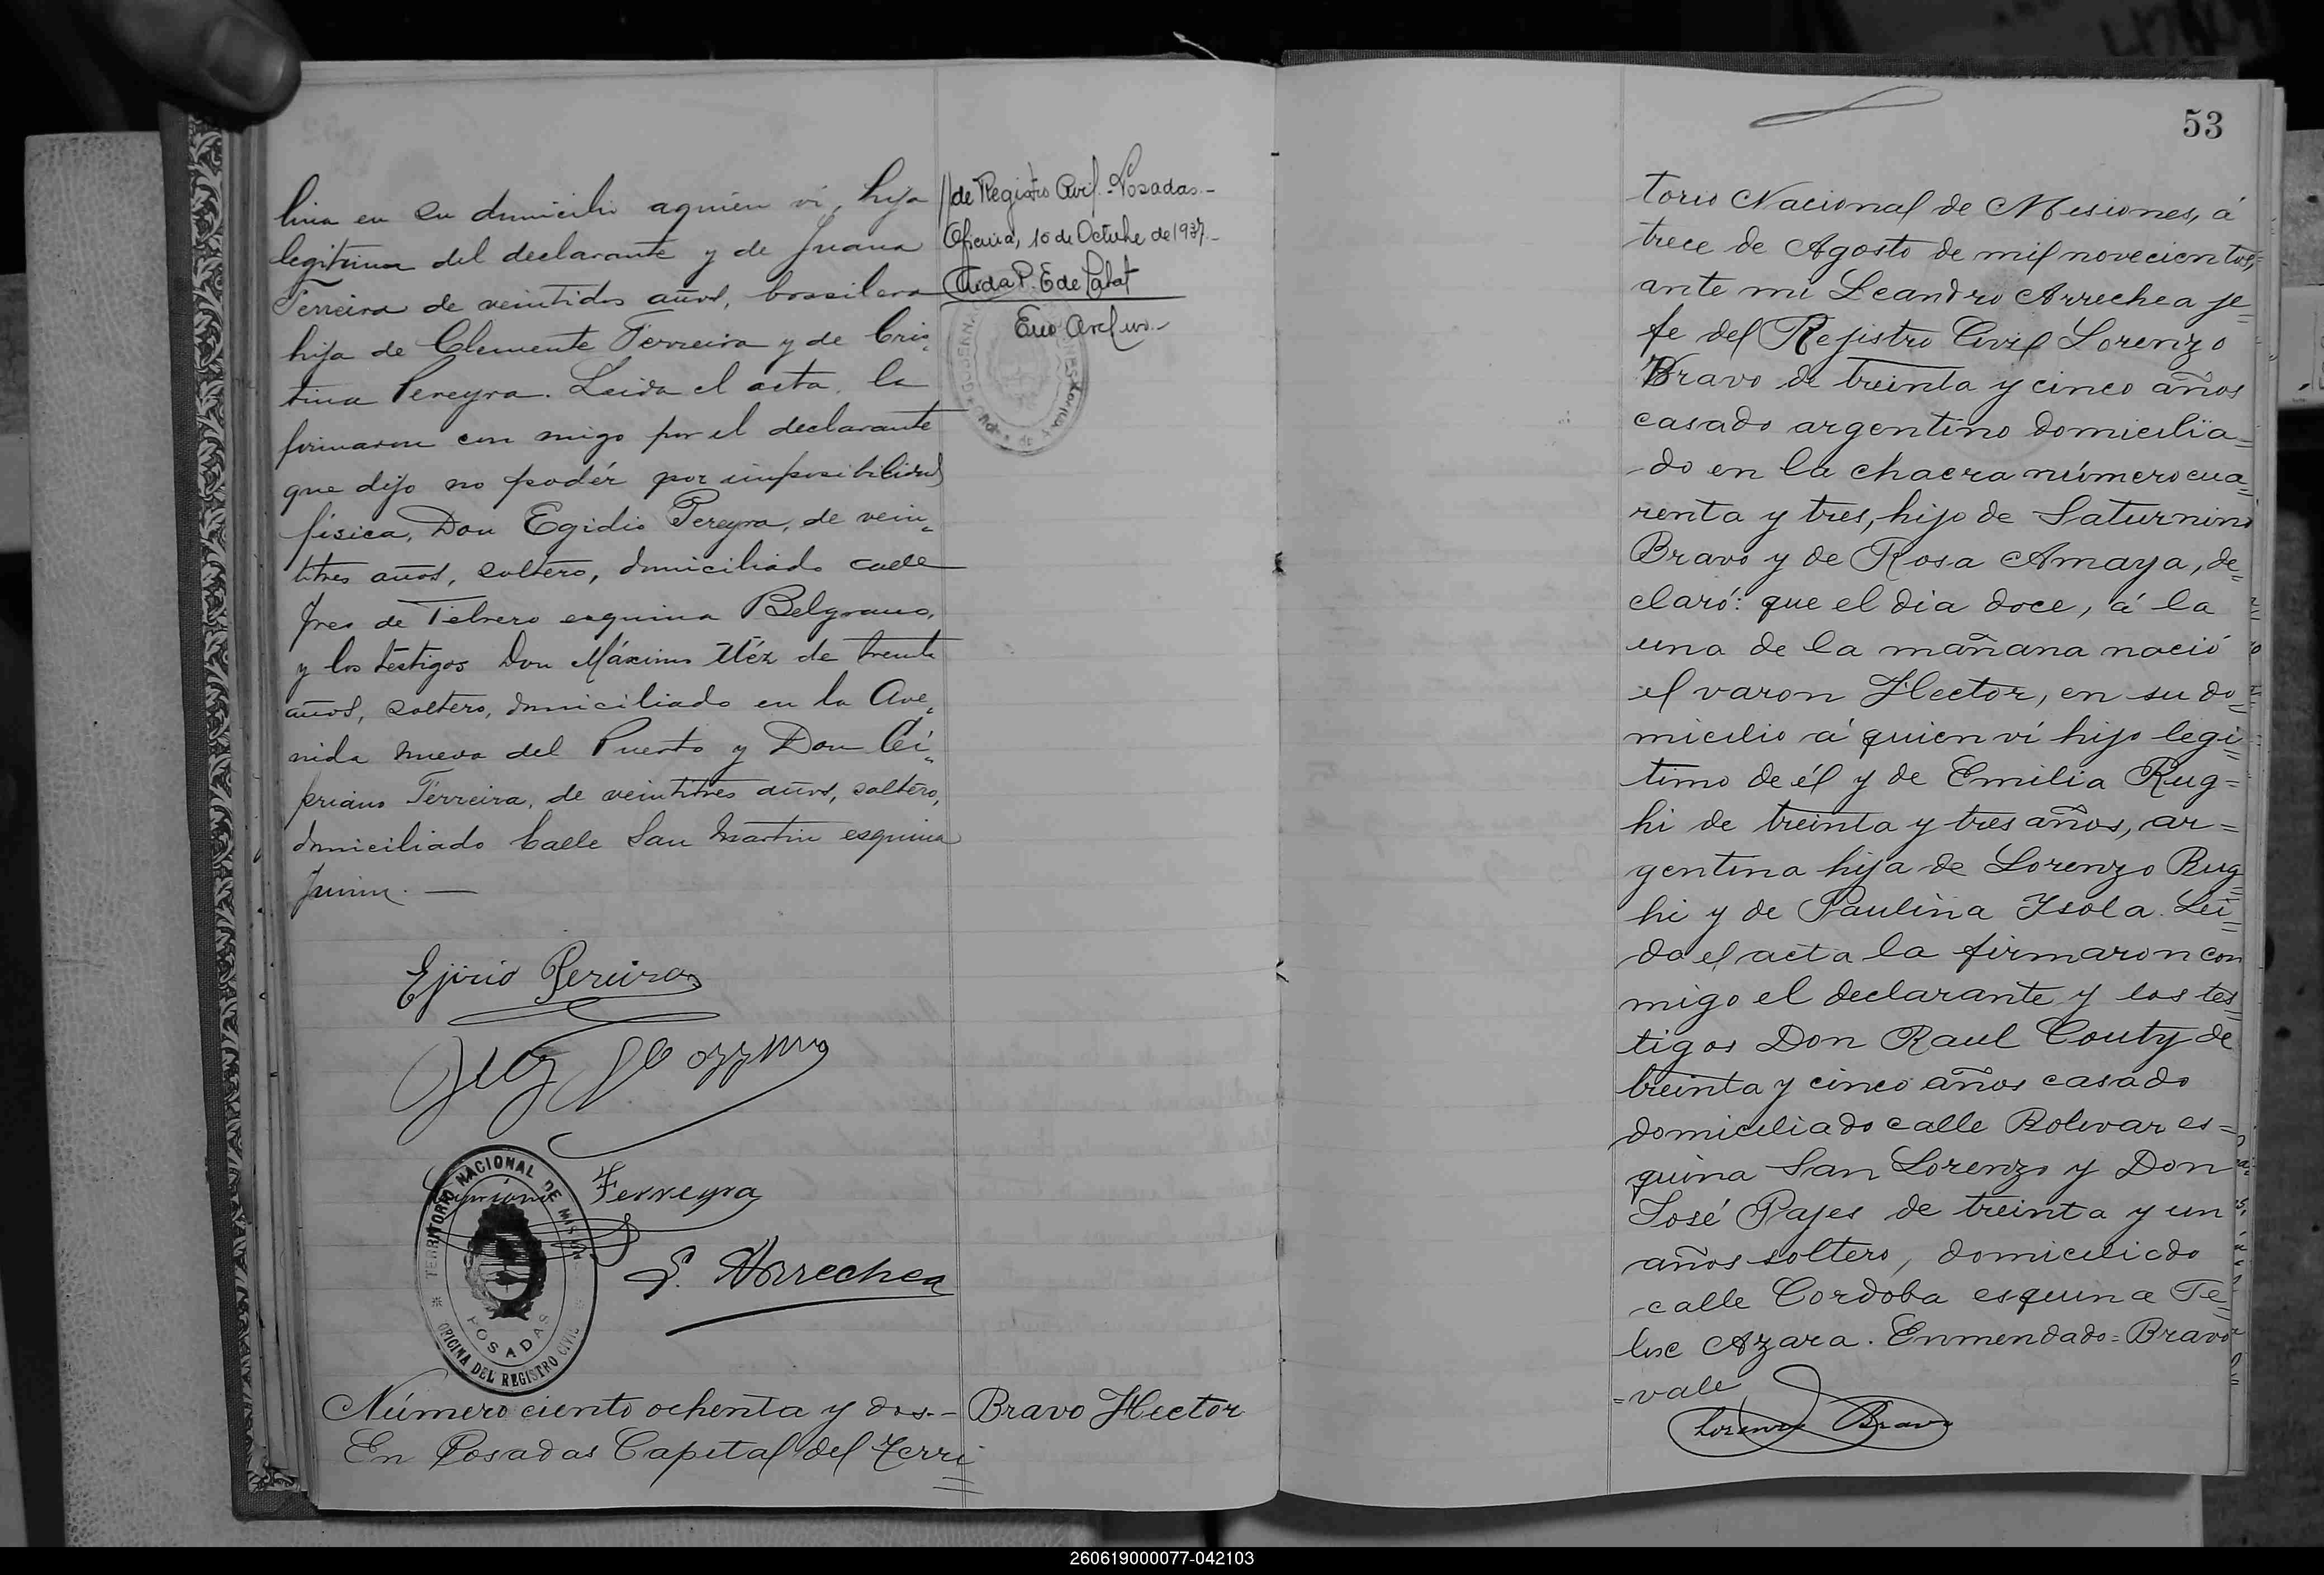 lina en su domicilio aquien vi, hija
legitima del declarante y de Juana
Ferreira de veintidos años, brasilera
hija de Clemente Ferreira y de Cris=
tina Pereyra. Leida el acta, la
firmaron con migo por el declarante
que dijo no podér por imposibilidad
física, Don Egidio Pereyra, de vein=
titres años, soltero, domiciliado calle
Tres de Febrero esquina Belgrano,
y los testigos Don Máximo de trenta
años, soltero, domiciliado en la Ave=
nida nueva del Puerto y Don Ci=
priano Ferreira, de veintitres años, soltero,
domiciliado Calle San Martin esquina
Junin. —
//de Registro Civil.-Posadas.-
Oficina, 10 de Octubre de 1937.-
P. E de
Ejirio Pereira
Ferreyra
L. Arrechea
TERRITORIO NACIONAL DE MISIONES
POSADAS
OFICINA DEL REGISTRO CIVIL
Número ciento ochenta y dos.-
Bravo Hector
En Posadas Capital del Terri=
53
torio Nacional de Misiones, á
trece de Agosto de mil novecientos,
ante mi Leandro Arrechea je=
fe del Rejistro Civil Lorenzo
Bravo de treinta y cinco años
casado argentino domicilia=
do en la chacra número cua=
renta y tres, hijo de Saturnino
Bravo y de Rosa Amaya, de=
claró: que el dia doce, á la
una de la mañana nació
el varon Hector, en su do=
micilio á quien ví hijo legi=
timo de él y de Emilia Rug=
hi de treinta y tres años, ar=
gentina hija de Lorenzo Rug=
hi y de Paulina Isola. Lei=
da el acta la firmaron con
migo el declarante y los tes=
tigos Don Raul Couty de
treinta y cinco años casado
domiciliado calle Bolivar es=
quina San Lorenzo y Don
José Pajes de treinta y un
años soltero, domiciliado
calle Cordoba esquina Fe=
lise Azara. Enmendado=Bravo
=vale
Lorenzo Bravo
260619000077-042103